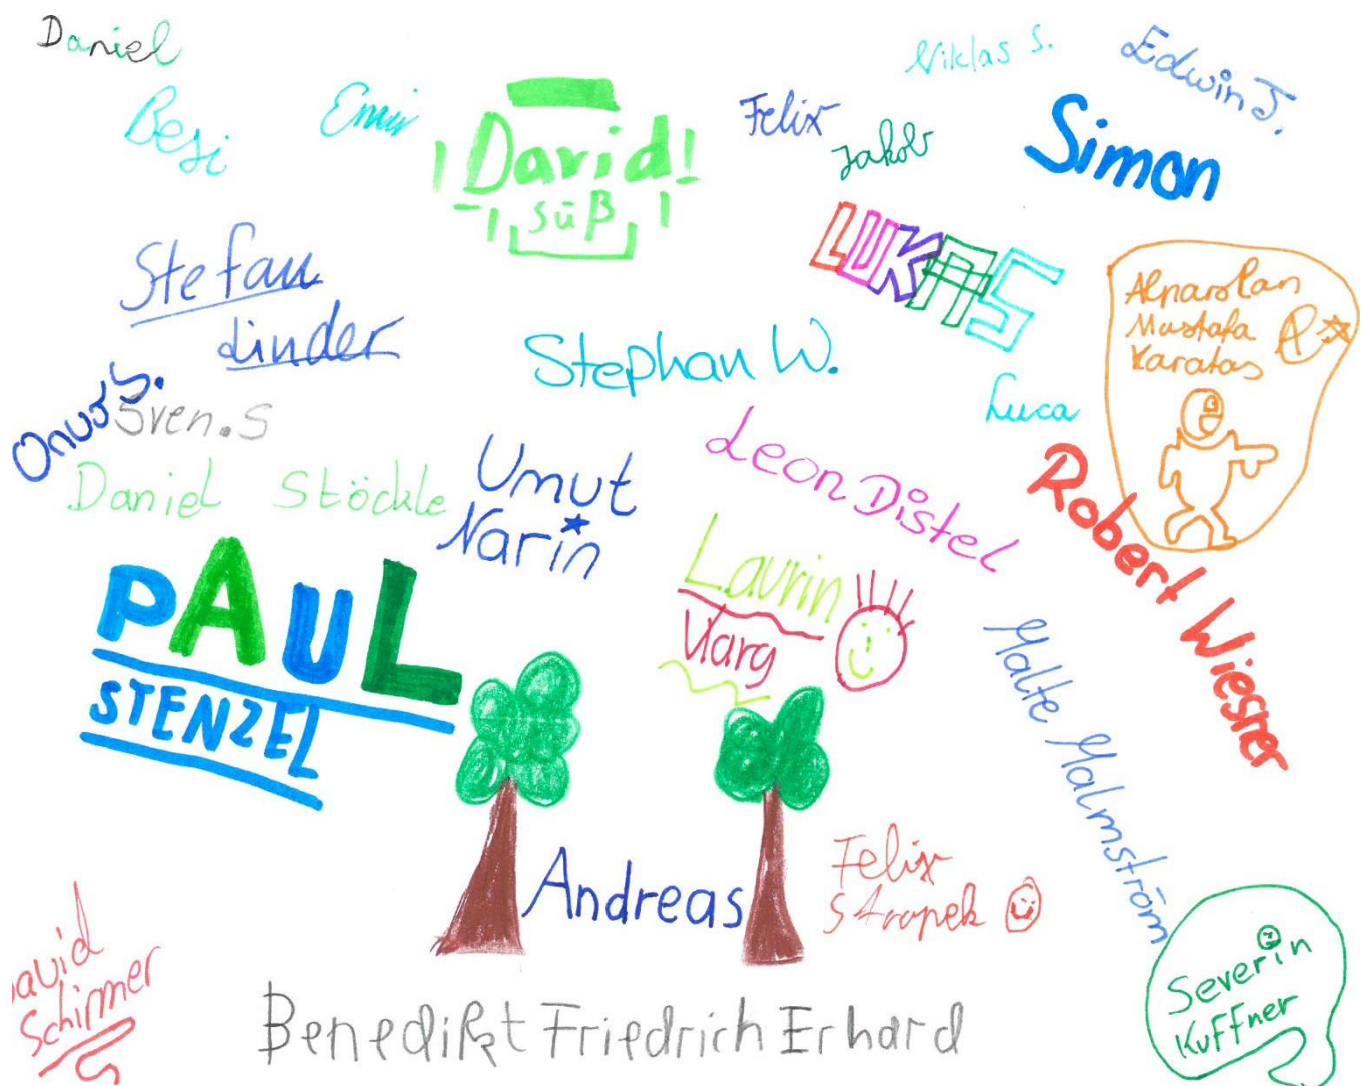 Daniel
Besi
Emir
David!
süß
Felix
Jakob
Niklas S.
Edwin J.
Simon
LUKAS
Stefan
Linder
Stephan W.
Mustafa
Karatas
Luca
Onur S.
Sven.S
Daniel Stöckle
Umut
Narin
Leon Distel
Robert Wiesner
PAUL
STENZEL
Laurin
Marg
Malte Malmström
Andreas
Felix
Stropek
David
Schirmer
Severin
Kuffner
Benedikt Friedrich Erhard